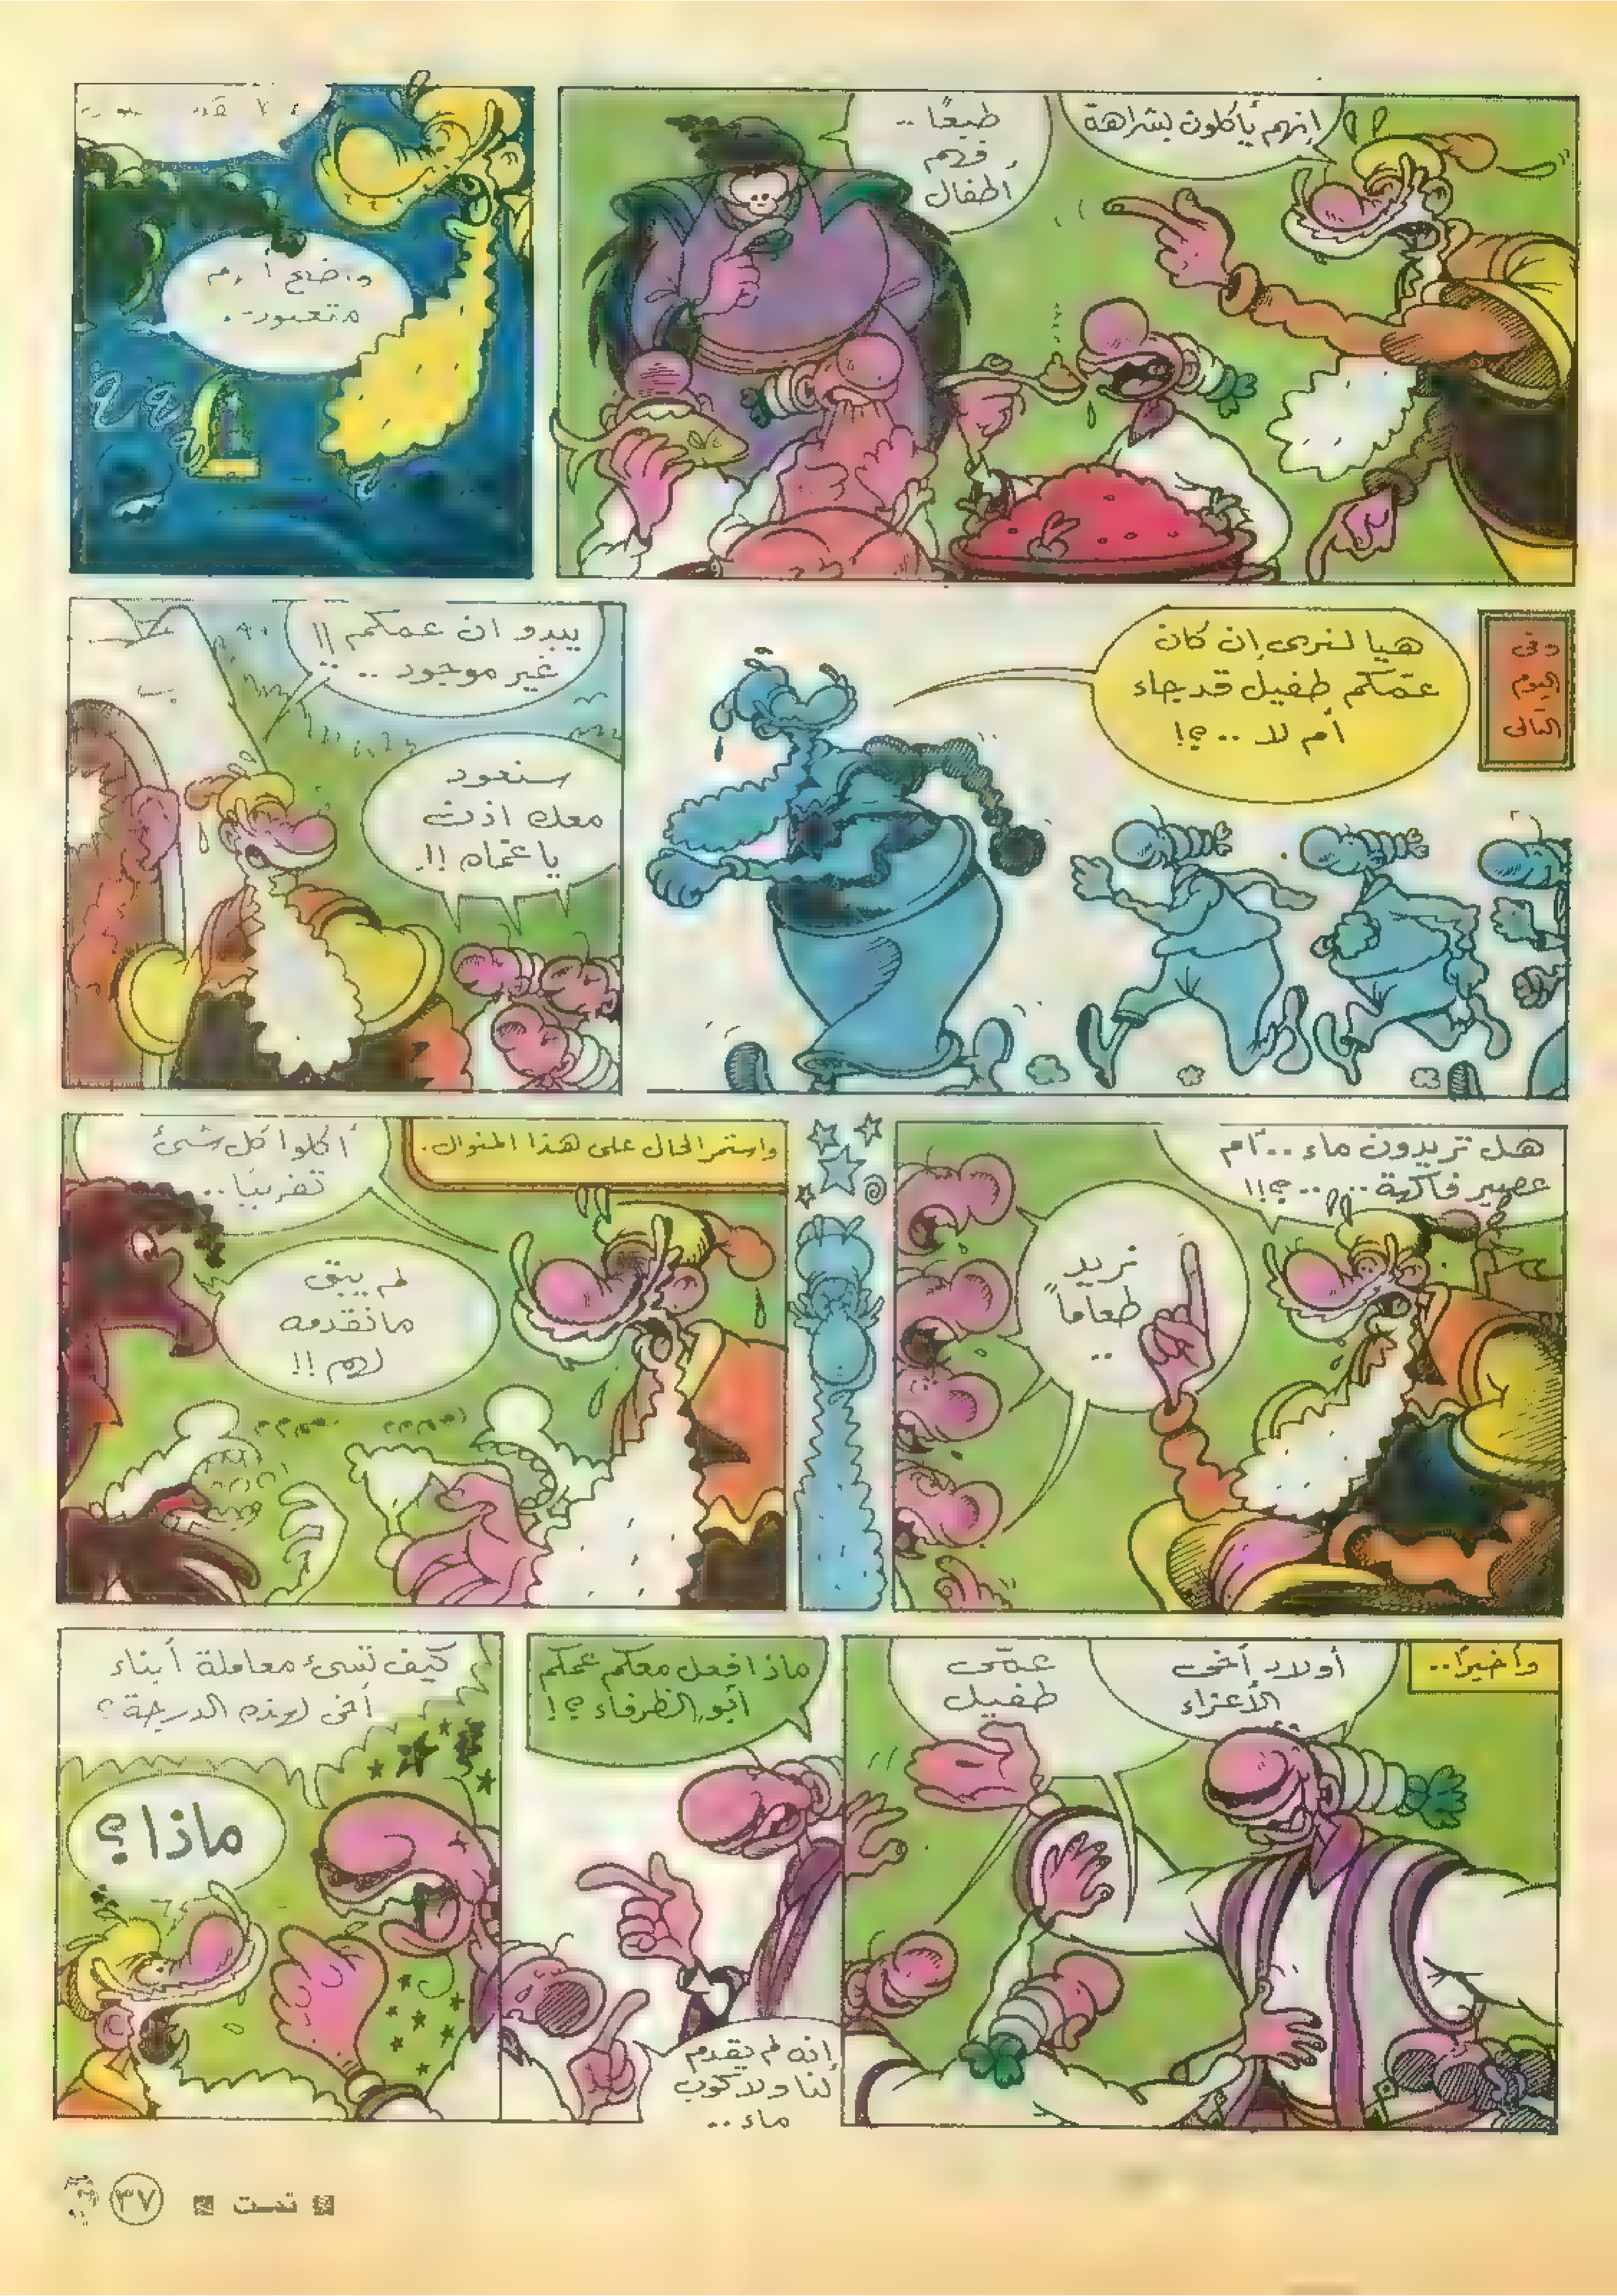 إنهم يأكلون بشراهة
طبعًا ..
فهم
أطفال
واضح أنهم
متعبون.
وفى
اليوم
التالى
هيا لنرى إن كان
عمّكم طفيل قد جاء
أم لا ..؟!
يبدو ان عمكم !!
غير موجود ..
سنعود
معك اذن
يا عماه !!.
هل تريدون ماء .. أم
عصير فاكهة .. ..؟!!
نريد
طعاماً
..
واستمر الحال على هذا المنوال.
أكلوا كل شئ
تقريبًا..
لم يبق
ما نقدمه
لهم !!
وأخيرًا..
أولاد أخى
الأعزاء
عمّى
طفيل
ماذا فعل معكم عمكم
أبو الظرفاء ؟!
إنه لم يقدم
لنا ولا كوب
ماء ..
كيف تسئ معاملة أبناء
أخى لهذه الدرجة ؟
ماذا ؟
تمت
٣٧